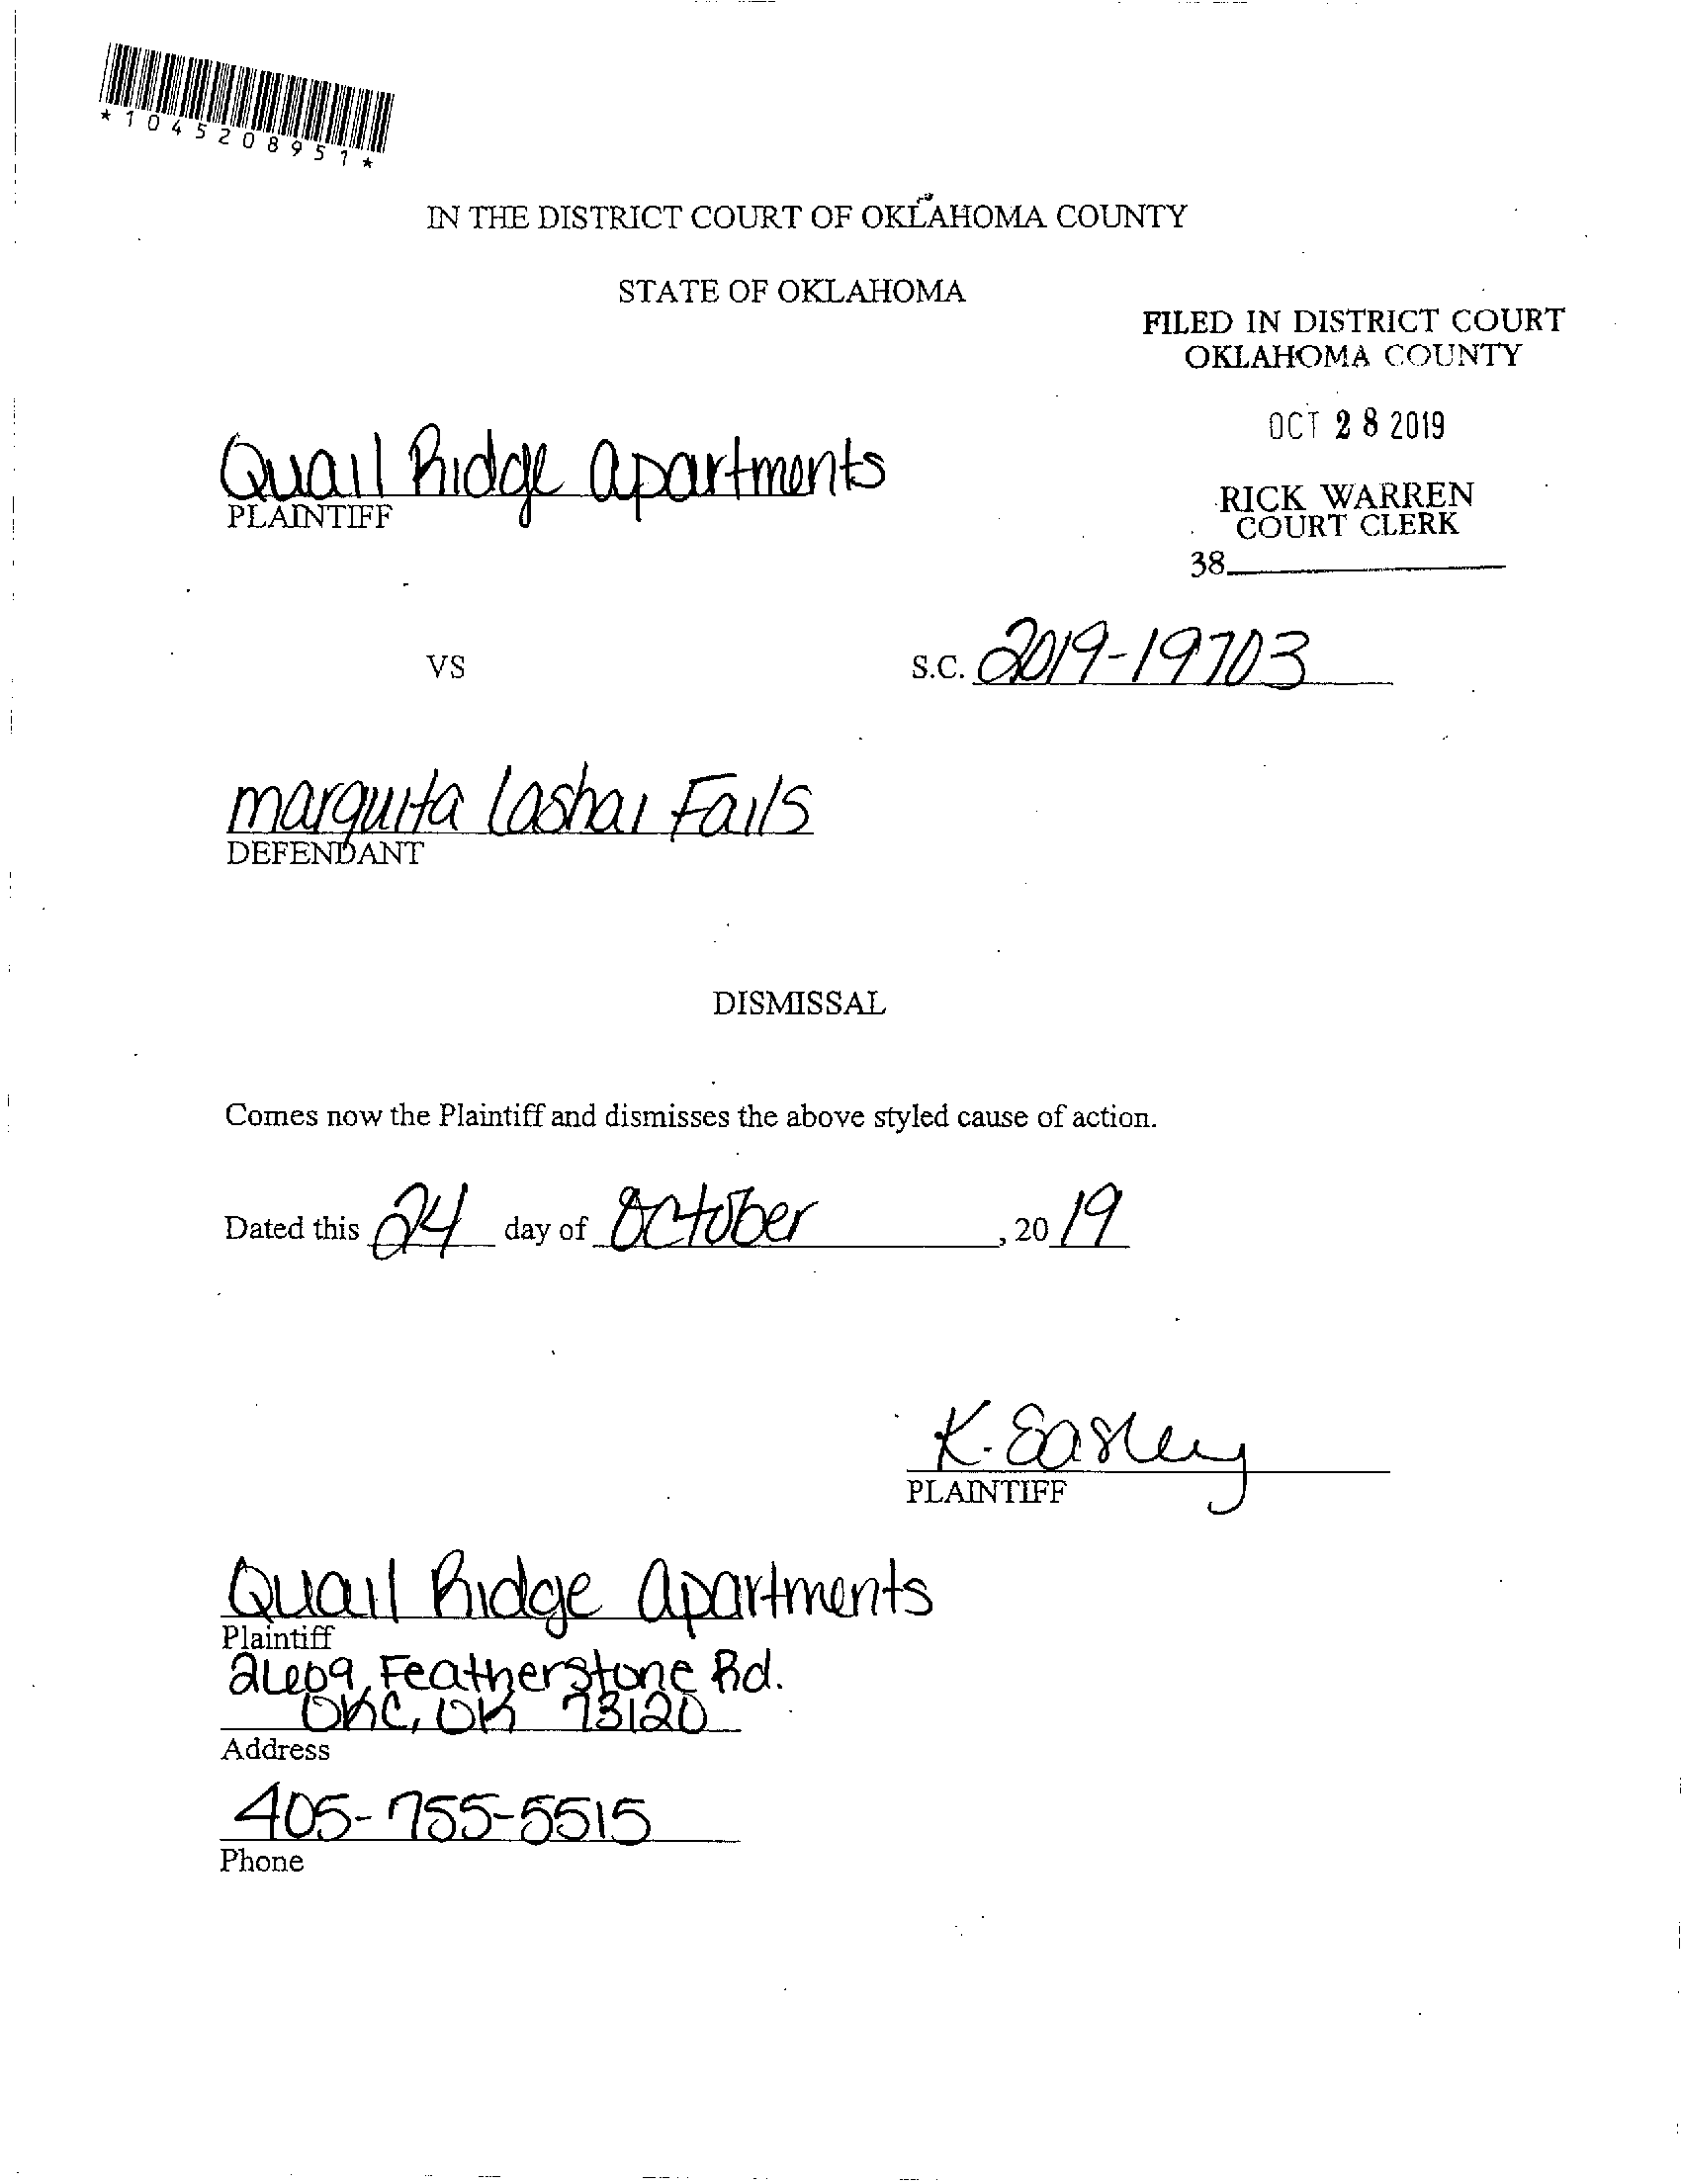 *1045208951*
IN THE DISTRICT COURT OF OKLAHOMA COUNTY
STATE OF OKLAHOMA
FILED IN DISTRICT COURT
OKLAHOMA COUNTY
OCT 28 2019
RICK WARREN
COURT CLERK
38
Quail Ridge Apartments
PLAINTIFF
VS
S.C. 2019-19703
Marquita Lashai Fails
DEFENDANT
DISMISSAL
Comes now the Plaintiff and dismisses the above styled cause of action.
Dated this 24 day of October, 2019
K. Easley
PLAINTIFF
Quail Ridge Apartments
Plaintiff
2609 Featherstone Rd.
OKC, OK 73120
Address
405-755-5515
Phone